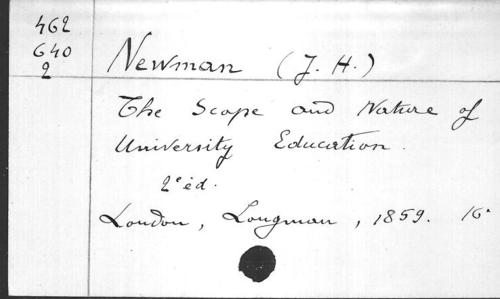 462
640
2
Newman (J. H.)
The Scope and Nature of
University Education.
2e éd.
London, Longman, 1859. 16°